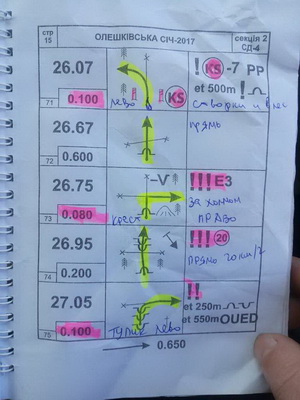 стр 15
ОЛЕШКІВСЬКА СІЧ-2017
секція 2
СД-4
26.07
! KS -7 PP
et 500m !
71
0.100
лево
KS
створки и в лес
26.67
прямо
72
0.600
26.75
!!! E3
за холмом
73
0.080
крест
право
26.95
!!! 20
прямо 20 км/ч
74
0.200
27.05
!!
et 250m
75
0.100
тупик лево
et 550m OUED
0.650